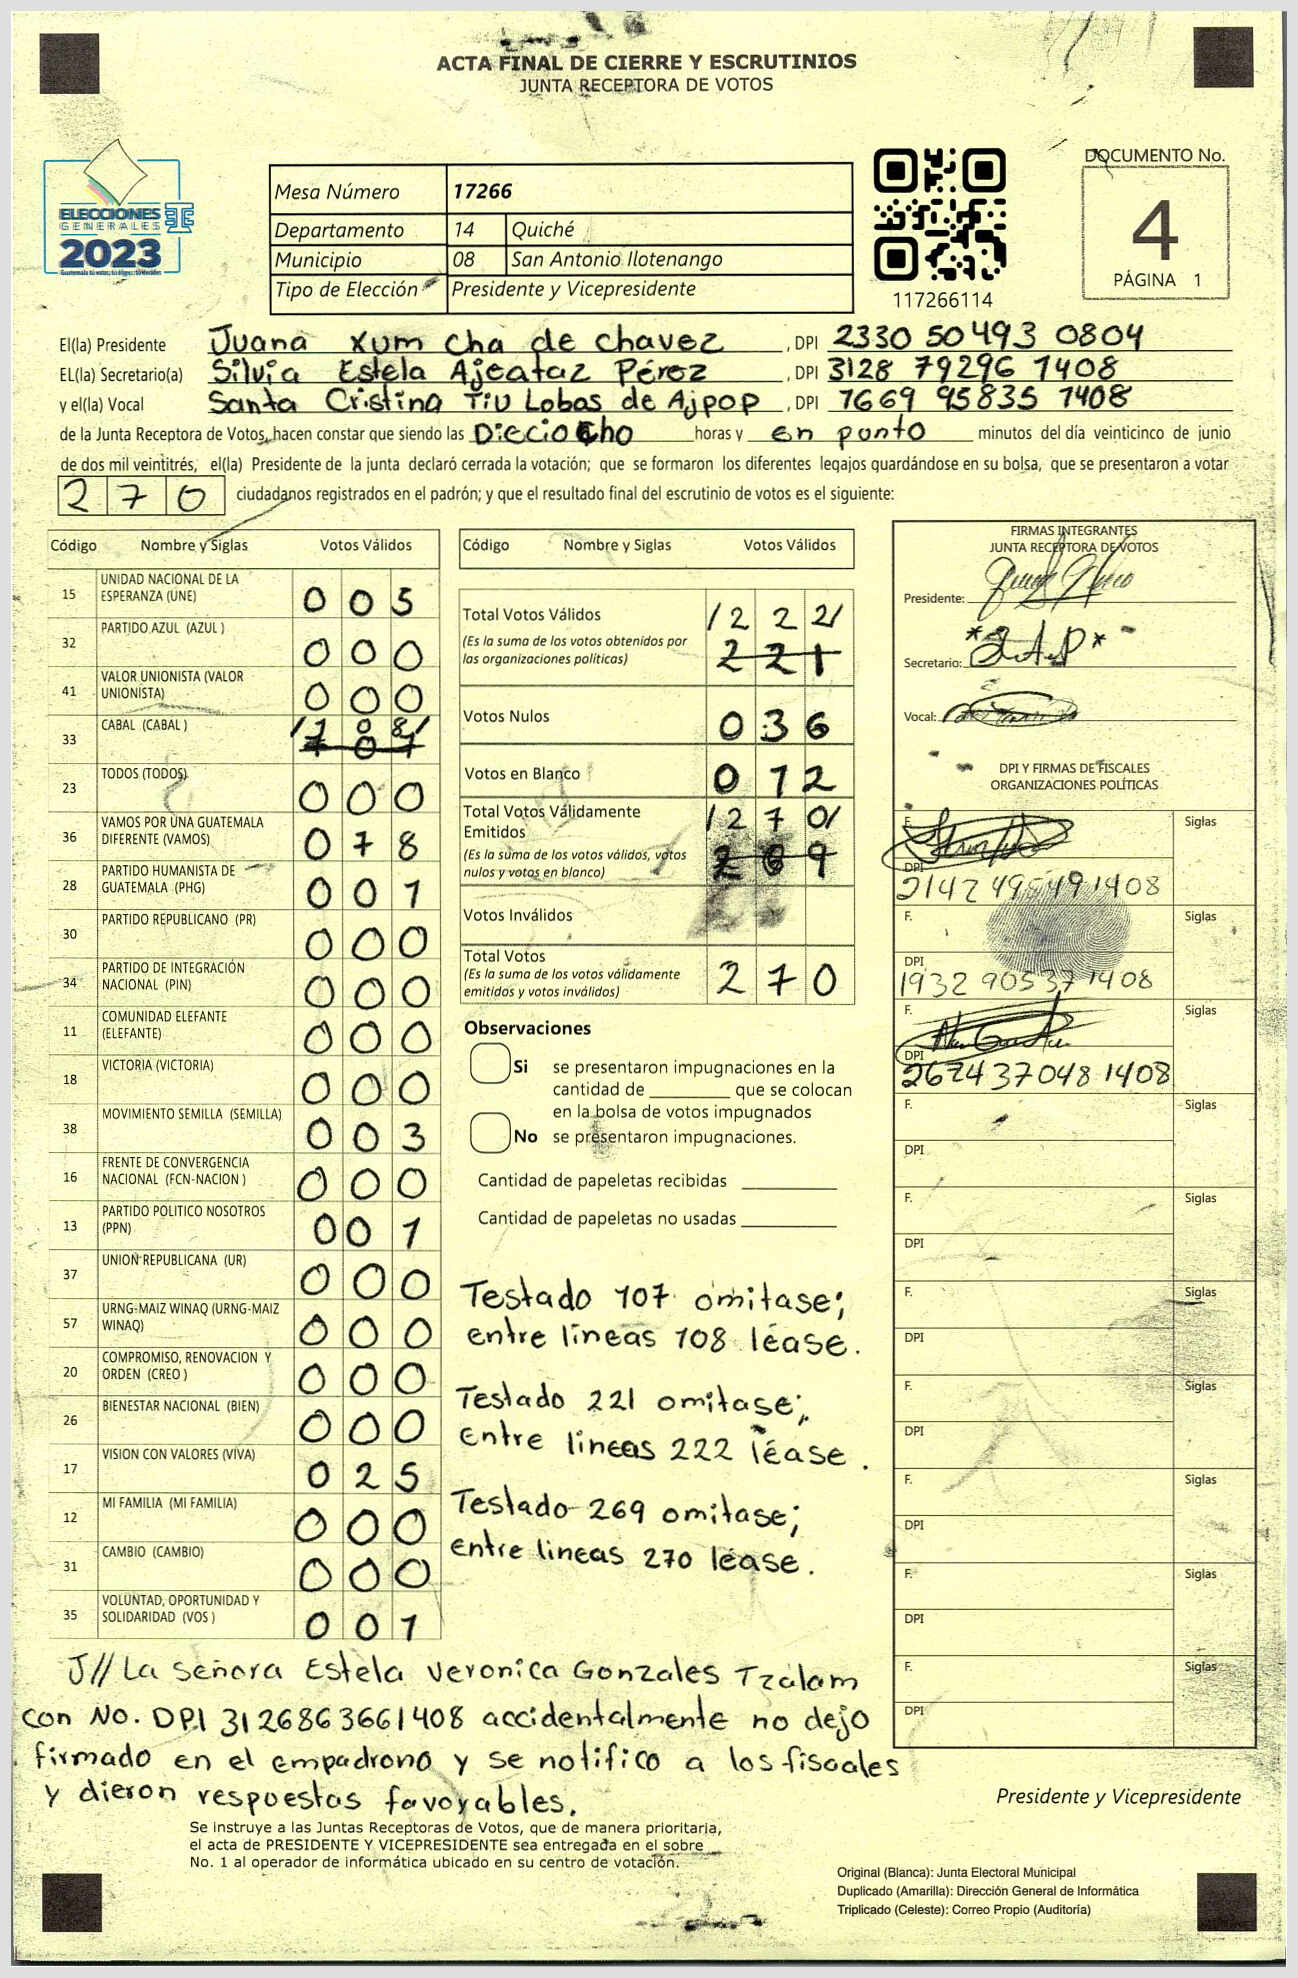 ACTA FINAL DE CIERRE Y ESCRUTINIOS
JUNTA RECEPTORA DE VOTOS
ELECCIONES
GENERALES
2023
Mesa Número 17266
Departamento 14 Quiché
Municipio 08 San Antonio Ilotenango
Tipo de Elección Presidente y Vicepresidente
117266114
DOCUMENTO No.
4
PÁGINA 1
El(la) Presidente Juana Xum Cha de Chavez, DPI 2330 50493 0804
EL(la) Secretario(a) Silvia Estela Ajcataz Pérez, DPI 3128 79296 1408
y el(la) Vocal Santa Cristina Tiu Lobos de Ajpop, DPI 7669 95835 1408
de la Junta Receptora de Votos, hacen constar que siendo las Dieciocho horas y en punto minutos del día veinticinco de junio
de dos mil veintitrés, el(la) Presidente de la junta declaró cerrada la votación; que se formaron los diferentes legajos guardándose en su bolsa, que se presentaron a votar
270 ciudadanos registrados en el padrón; y que el resultado final del escrutinio de votos es el siguiente:
Código Nombre y Siglas Votos Válidos
15 UNIDAD NACIONAL DE LA ESPERANZA (UNE) 0 0 5
32 PARTIDO AZUL (AZUL ) 0 0 0
41 VALOR UNIONISTA (VALOR UNIONISTA) 0 0 0
33 CABAL (CABAL ) /1 0 8/
1 0 7
23 TODOS (TODOS) 0 0 0
36 VAMOS POR UNA GUATEMALA DIFERENTE (VAMOS) 0 7 8
28 PARTIDO HUMANISTA DE GUATEMALA (PHG) 0 0 1
30 PARTIDO REPUBLICANO (PR) 0 0 0
34 PARTIDO DE INTEGRACIÓN NACIONAL (PIN) 0 0 0
11 COMUNIDAD ELEFANTE (ELEFANTE) 0 0 0
18 VICTORIA (VICTORIA) 0 0 0
38 MOVIMIENTO SEMILLA (SEMILLA) 0 0 3
16 FRENTE DE CONVERGENCIA NACIONAL (FCN-NACION ) 0 0 0
13 PARTIDO POLITICO NOSOTROS (PPN) 0 0 1
37 UNION REPUBLICANA (UR) 0 0 0
57 URNG-MAIZ WINAQ (URNG-MAIZ WINAQ) 0 0 0
20 COMPROMISO, RENOVACION Y ORDEN (CREO ) 0 0 0
26 BIENESTAR NACIONAL (BIEN) 0 0 0
17 VISION CON VALORES (VIVA) 0 2 5
12 MI FAMILIA (MI FAMILIA) 0 0 0
31 CAMBIO (CAMBIO) 0 0 0
35 VOLUNTAD, OPORTUNIDAD Y SOLIDARIDAD (VOS ) 0 0 1
Código Nombre y Siglas Votos Válidos
Total Votos Válidos /2 2 2/
(Es la suma de los votos obtenidos por
las organizaciones políticas) 2 2 1
Votos Nulos 0 3 6
Votos en Blanco 0 1 2
Total Votos Válidamente Emitidos /2 7 0/
(Es la suma de los votos válidos, votos
nulos y votos en blanco) 2 6 9
Votos Inválidos
Total Votos
(Es la suma de los votos válidamente
emitidos y votos inválidos) 2 7 0
Observaciones
Si se presentaron impugnaciones en la
cantidad de ________ que se colocan
en la bolsa de votos impugnados
No se presentaron impugnaciones.
Cantidad de papeletas recibidas
Cantidad de papeletas no usadas
Testado 107 omitase;
entre líneas 108 léase.
Testado 221 omitase;
entre líneas 222 léase.
Testado 269 omitase;
entre lineas 270 léase.
FIRMAS INTEGRANTES
JUNTA RECEPTORA DE VOTOS
Presidente:
Secretario:
Vocal:
DPI Y FIRMAS DE FISCALES
ORGANIZACIONES POLÍTICAS
F. Siglas
DPI
2142 49549 1408
F. Siglas
DPI
1932 90537 1408
F. Siglas
DPI
2624 37048 1408
F. Siglas
DPI
F. Siglas
DPI
F. Siglas
DPI
F. Siglas
DPI
F. Siglas
DPI
F. Siglas
DPI
F. Siglas
DPI
J// La señora Estela Veronica Gonzales Tzalam
con No. DPI 3126863661408 accidentalmente no dejo
firmado en el empadrono y se notifico a los fiscales
y dieron respuestas favorables.
Presidente y Vicepresidente
Se instruye a las Juntas Receptoras de Votos, que de manera prioritaria,
el acta de PRESIDENTE Y VICEPRESIDENTE sea entregada en el sobre
No. 1 al operador de informática ubicado en su centro de votación.
Original (Blanca): Junta Electoral Municipal
Duplicado (Amarilla): Dirección General de Informática
Triplicado (Celeste): Correo Propio (Auditoría)